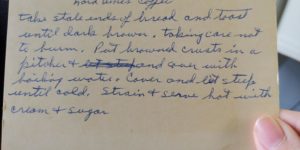 Hard times Coffee
take stale ends of bread and toast
until dark brown, taking care not
to burn. Put browned crusts in a
pitcher & let steep and cover with
boiling water. Cover and let steep
until cold. Strain & serve hot with
cream & sugar